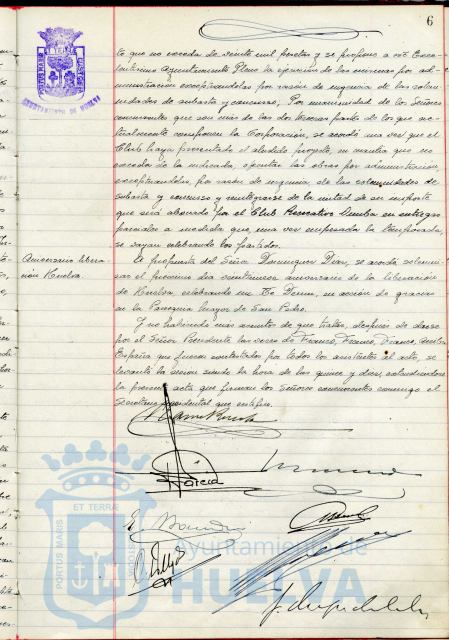 6
to que no exceda de veinte mil pesetas y se propuso a este Exce-
lentísimo Ayuntamiento Pleno la ejecución de las mismas por ad-
ministración exceptuándolas por razón de urgencia de las solem-
nidades de subasta y concurso, Por unanimidad de los Señores
concurrentes que son más de las dos terceras partes de los que ac-
tualmente componen la Corporación, se acordó una vez que el
Club haya presentado el aludido proyecto, en cuantía que no
exceda de la indicada, ejecutar las obras por administración,
exceptuándolas, por razón de urgencia, de las solemnidades de
subasta y concurso y reintegrarse de la mitad de su importe
que será abonado por el Club Recreativo Onuba en entregas
parciales a medida que, una vez empezada la temporada,
se vayan celebrando los partidos.
Aniversario libera-
ción Huelva.
A propuesta del Señor Domínguez Díaz, se acordó solemni-
zar el próximo día veintinueve aniversario de la liberación
de Huelva, celebrando un Te Deum, en acción de gracias
en la Parroquia Mayor de San Pedro.
Y no habiendo más asuntos de que tratar, después de darse
por el Señor Presidente las voces de Franco, Franco, Franco, Arriba
España que fueron contestadas por todos los asistentes al acto, se
levantó la sesión siendo la hora de las quince y diez, extendiéndose
la presente acta que firman los Señores concurrentes conmigo el
Secretario accidental que certifico.
García
AYUNTAMIENTO DE HUELVA
PORTUS MARIS
ET TERRAE
Ayuntamiento de
HUELVA